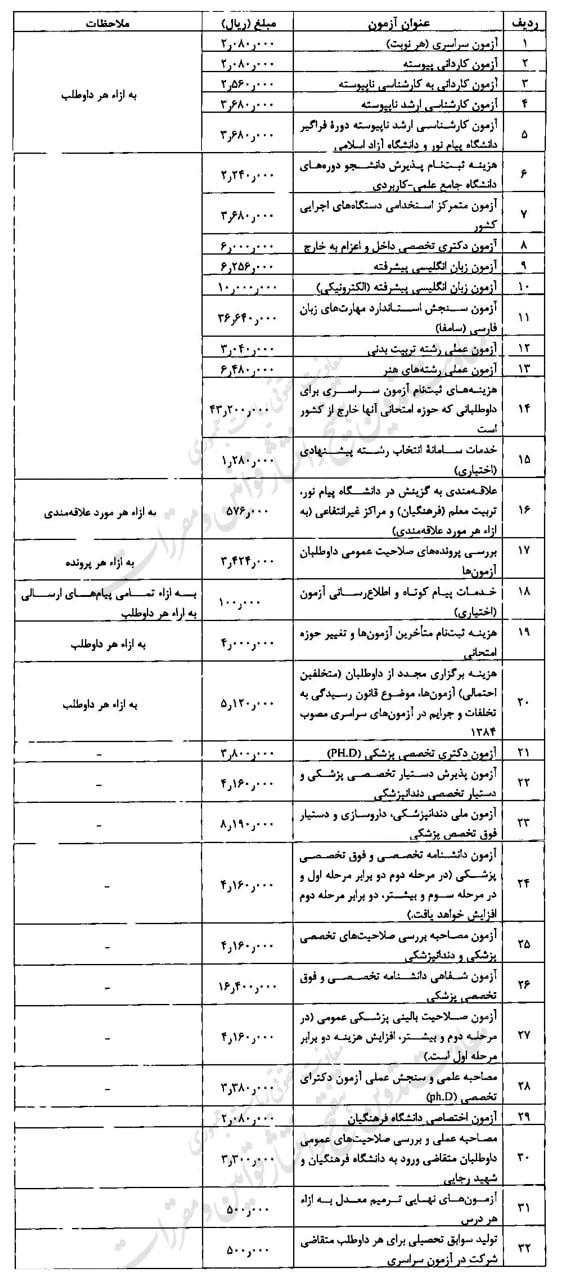 ردیف عنوان آزمون مبلغ (ریال) ملاحظات
۱ آزمون سراسری (هر نوبت) ۲٫۰۸۰٫۰۰۰
۲ آزمون کاردانی پیوسته ۲٫۰۸۰٫۰۰۰
۳ آزمون کاردانی به کارشناسی ناپیوسته ۲٫۵۶۰٫۰۰۰
به ازاء هر داوطلب
۴ آزمون کارشناسی ارشد ناپیوسته ۳٫۶۸۰٫۰۰۰
۵ آزمون کارشناسی ارشد ناپیوسته دورۀ فراگیر
دانشگاه پیام نور و دانشگاه آزاد اسلامی ۳٫۶۸۰٫۰۰۰
۶ هزینه ثبت‌نام پذیرش دانشجو دوره‌های
دانشگاه جامع علمی-کاربردی ۲٫۲۴۰٫۰۰۰
۷ آزمون متمرکز استخدامی دستگاه‌های اجرایی
کشور ۳٫۶۸۰٫۰۰۰
۸ آزمون دکتری تخصصی داخل و اعزام به خارج ۶٫۰۰۰٫۰۰۰
۹ آزمون زبان انگلیسی پیشرفته ۶٫۲۵۶٫۰۰۰
۱۰ آزمون زبان انگلیسی پیشرفته (الکترونیکی) ۱۰٫۰۰۰٫۰۰۰
۱۱ آزمون سنجش استاندارد مهارت‌های زبان
فارسی (سامفا) ۳۶٫۶۴۰٫۰۰۰
۱۲ آزمون عملی رشته تربیت بدنی ۳٫۰۴۰٫۰۰۰
۱۳ آزمون عملی رشته‌های هنر ۶٫۴۸۰٫۰۰۰
۱۴ هزینه‌های ثبت‌نام آزمون سراسری برای
داوطلبانی که حوزه امتحانی آنها خارج از کشور
است ۴۳٫۲۰۰٫۰۰۰
۱۵ خدمات سامانۀ انتخاب رشته پیشنهادی
(اختیاری) ۱٫۲۸۰٫۰۰۰
۱۶ علاقه‌مندی به گزینش در دانشگاه پیام نور،
تربیت معلم (فرهنگیان) و مراکز غیرانتفاعی (به
ازاء هر مورد علاقه‌مندی) ۵۷۶٫۰۰۰ به ازاء هر مورد علاقه‌مندی
۱۷ بررسی پرونده‌های صلاحیت عمومی داوطلبان
آزمون‌ها ۳٫۴۲۴٫۰۰۰ به ازاء هر پرونده
۱۸ خدمات پیام کوتاه و اطلاع‌رسانی آزمون
(اختیاری) ۱۰۰٫۰۰۰ به ازاء تمامی پیام‌های ارسالی
به ازاء هر داوطلب
۱۹ هزینه ثبت‌نام متأخرین آزمون‌ها و تغییر حوزه
امتحانی ۴٫۰۰۰٫۰۰۰ به ازاء هر داوطلب
۲۰ هزینه برگزاری مجدد از داوطلبان (متخلفین
احتمالی) آزمون‌ها، موضوع قانون رسیدگی به
تخلفات و جرایم در آزمون‌های سراسری مصوب
۱۳۸۴ ۵٫۱۲۰٫۰۰۰ به ازاء هر داوطلب
۲۱ آزمون دکتری تخصصی پزشکی (PH.D) ۳٫۸۰۰٫۰۰۰ -
۲۲ آزمون پذیرش دستیار تخصصی پزشکی و
دستیار تخصصی دندانپزشکی ۴٫۱۶۰٫۰۰۰ -
۲۳ آزمون ملی دندانپزشکی، داروسازی و دستیار
فوق تخصص پزشکی ۸٫۱۹۰٫۰۰۰ -
۲۴ آزمون دانشنامه تخصصی و فوق تخصصی
پزشکی (در مرحله دوم دو برابر مرحله اول و
در مرحله سوم و بیشتر، دو برابر مرحله دوم
افزایش خواهد یافت.) ۴٫۱۶۰٫۰۰۰ -
۲۵ آزمون مصاحبه بررسی صلاحیت‌های تخصصی
پزشکی و دندانپزشکی ۴٫۱۶۰٫۰۰۰ -
۲۶ آزمون شفاهی دانشنامه تخصصی و فوق
تخصصی پزشکی ۱۶٫۴۰۰٫۰۰۰ -
۲۷ آزمون صلاحیت بالینی پزشکی عمومی (در
مرحله دوم و بیشتر، افزایش هزینه دو برابر
مرحله اول است.) ۴٫۱۶۰٫۰۰۰ -
۲۸ مصاحبه علمی و سنجش عملی آزمون دکترای
تخصصی (ph.D) ۳٫۳۸۰٫۰۰۰ -
۲۹ آزمون اختصاصی دانشگاه فرهنگیان ۲٫۰۸۰٫۰۰۰
۳۰ مصاحبه عملی و بررسی صلاحیت‌های عمومی
داوطلبان متقاضی ورود به دانشگاه فرهنگیان و
شهید رجایی ۳٫۳۰۰٫۰۰۰
۳۱ آزمون‌های نهایی ترمیم معدل به ازاء
هر درس ۵۰۰٫۰۰۰
۳۲ تولید سوابق تحصیلی برای هر داوطلب متقاضی
شرکت در آزمون سراسری ۵۰۰٫۰۰۰